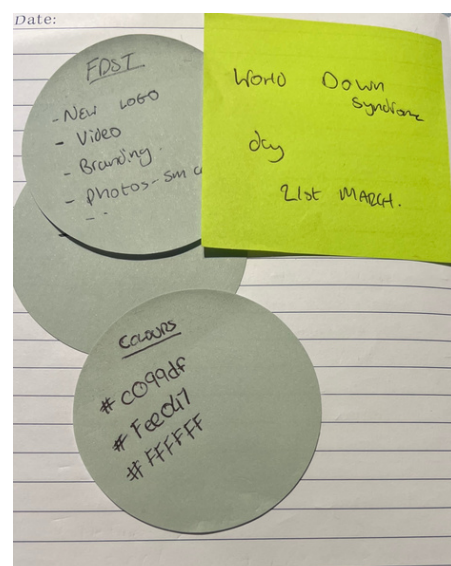 Date:
FDSI
- New LOGO
- Video
- Branding.
- Photos - sm
World Down
Syndrome
day
21st MARCH.
COLOURS
# c099df
# Feed47
# FFFFFF